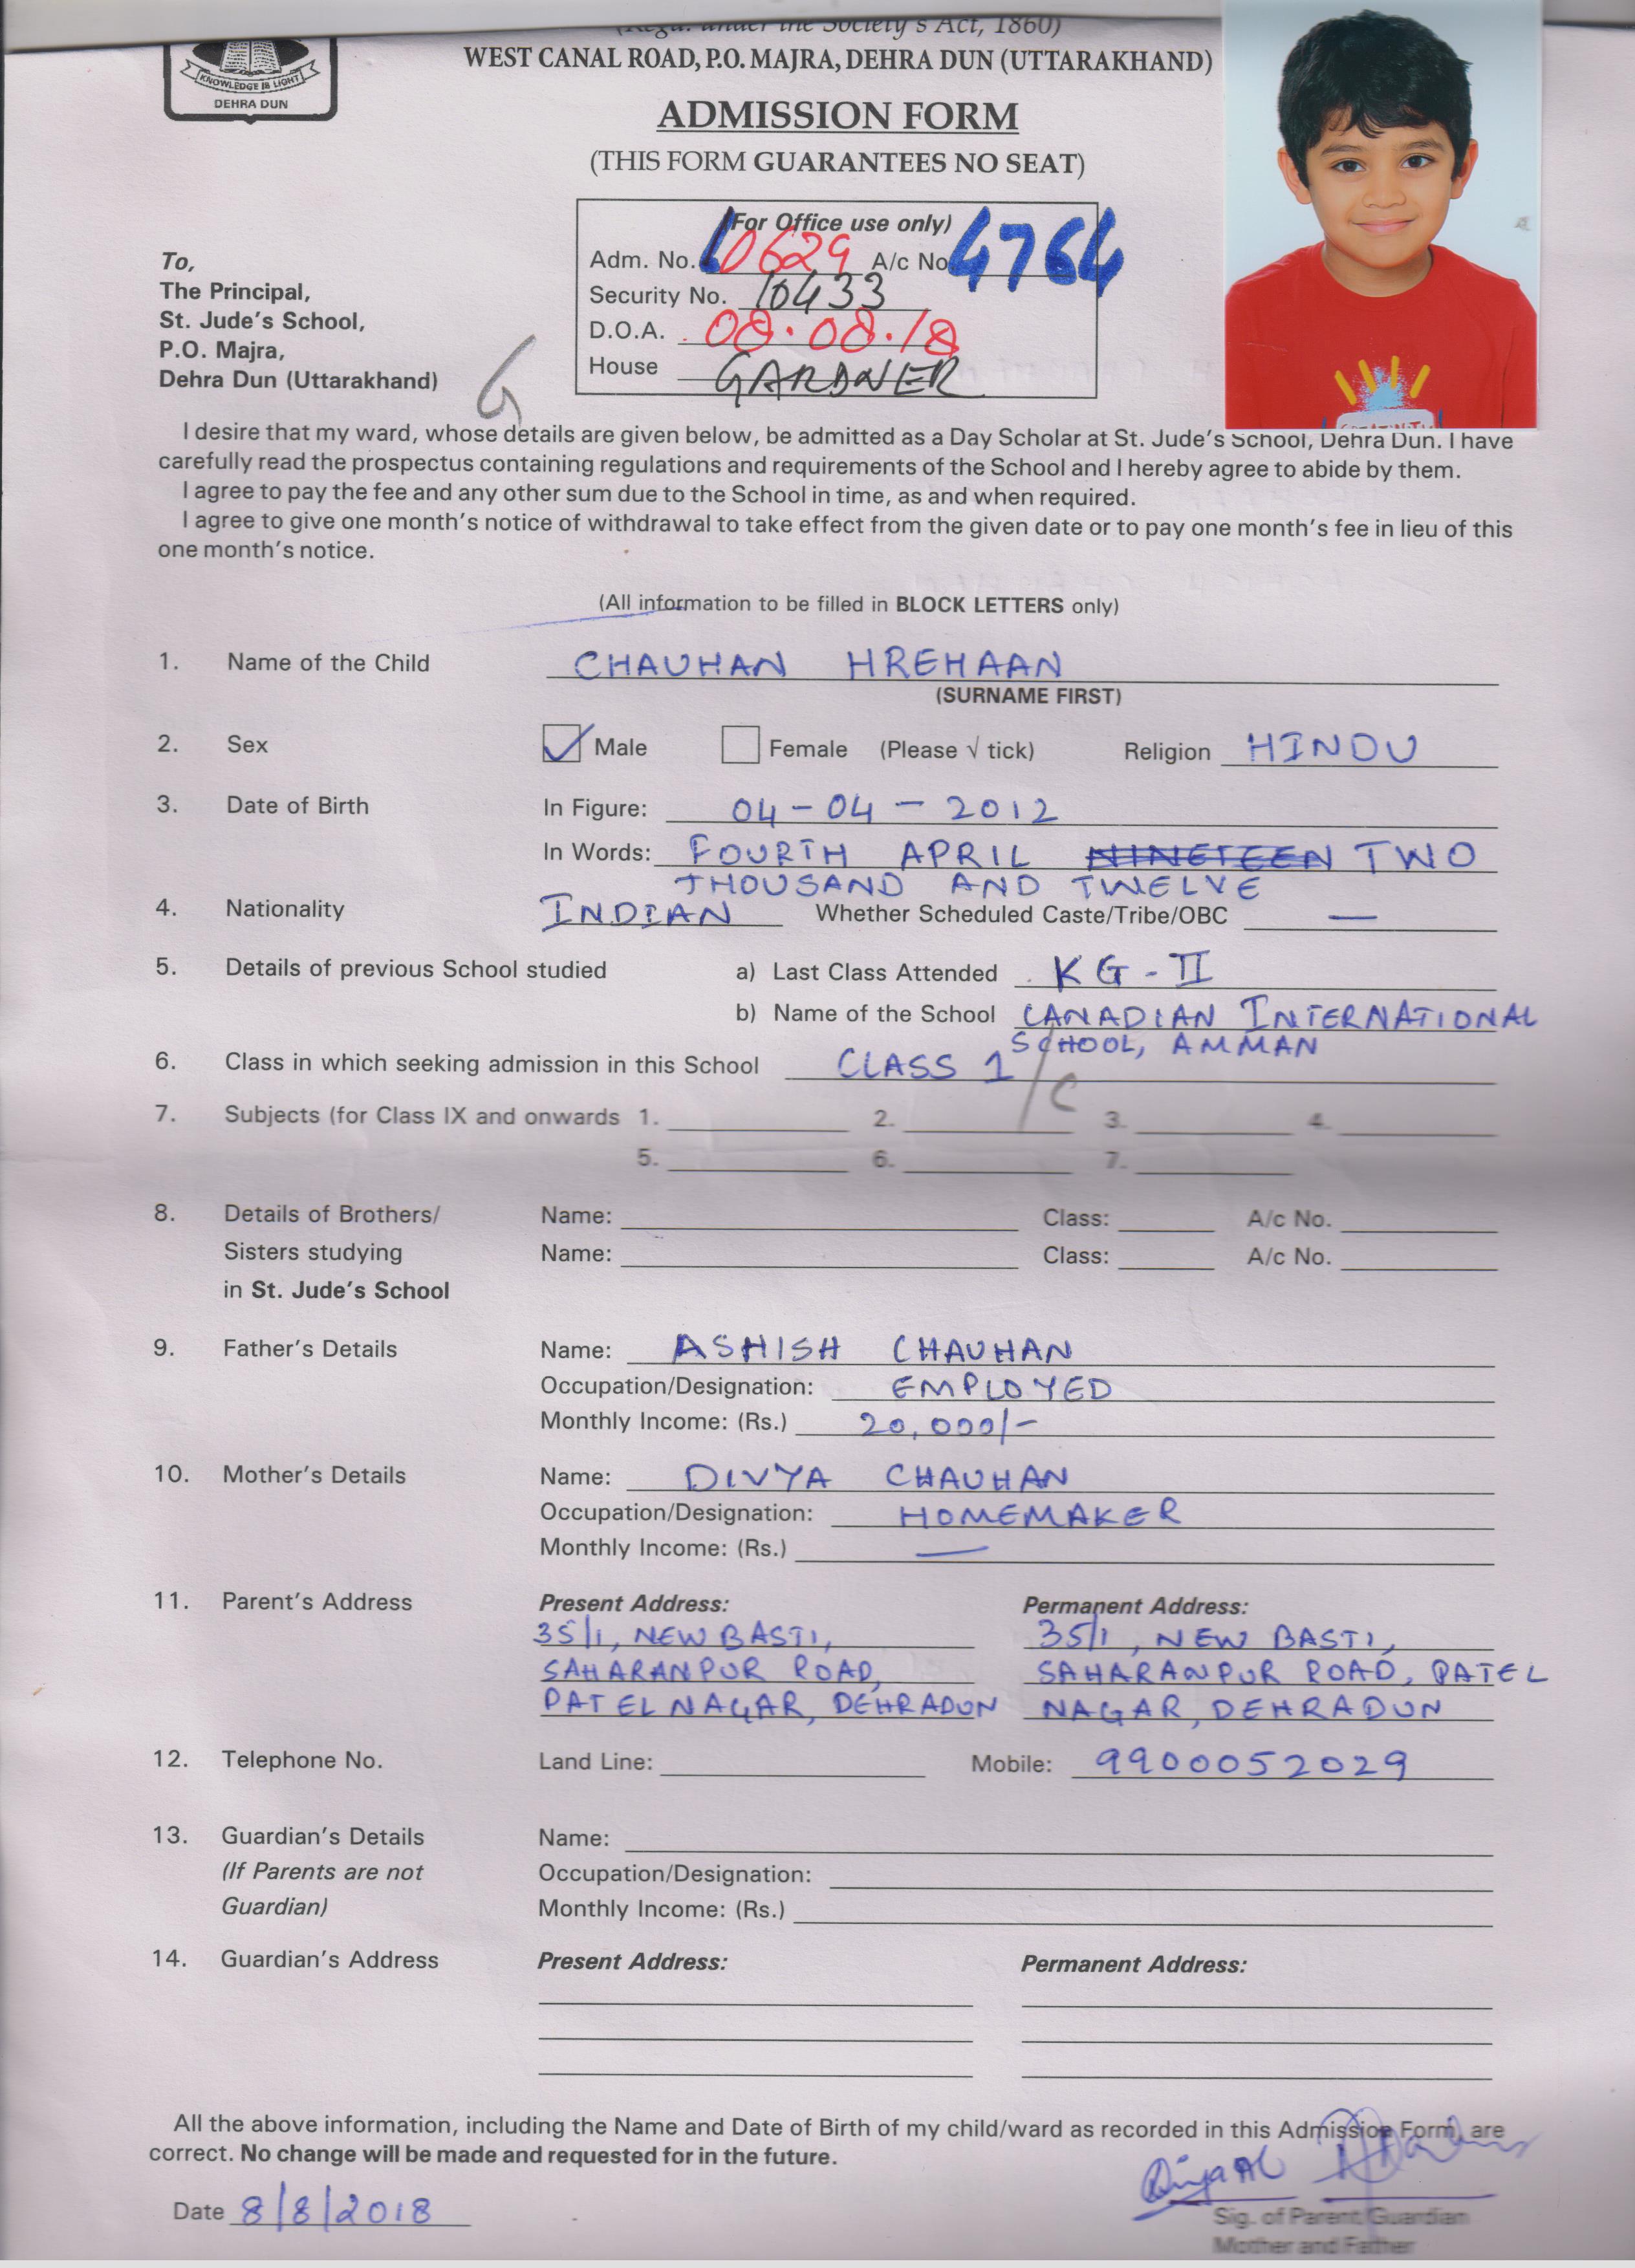 (Regd. under the Society's Act, 1860)
WEST CANAL ROAD, P.O. MAJRA, DEHRA DUN (UTTARAKHAND)
KNOWLEDGE IS LIGHT
DEHRA DUN
ADMISSION FORM
(THIS FORM GUARANTEES NO SEAT)
(For Office use only)
Adm. No. 10629 A/c No 4764
Security No. 10433
D.O.A. 08.08.18
House GARDNER
To,
The Principal,
St. Jude's School,
P.O. Majra,
Dehra Dun (Uttarakhand)
G
I desire that my ward, whose details are given below, be admitted as a Day Scholar at St. Jude's School, Dehra Dun. I have
carefully read the prospectus containing regulations and requirements of the School and I hereby agree to abide by them.
I agree to pay the fee and any other sum due to the School in time, as and when required.
I agree to give one month's notice of withdrawal to take effect from the given date or to pay one month's fee in lieu of this
one month's notice.
(All information to be filled in BLOCK LETTERS only)
1. Name of the Child CHAUHAN HREHAAN
(SURNAME FIRST)
2. Sex ✓ Male Female (Please √ tick) Religion HINDU
3. Date of Birth In Figure: 04-04-2012
In Words: FOURTH APRIL NINETEEN TWO
THOUSAND AND TWELVE
4. Nationality INDIAN Whether Scheduled Caste/Tribe/OBC —
5. Details of previous School studied a) Last Class Attended KG-II
b) Name of the School CANADIAN INTERNATIONAL
SCHOOL, AMMAN
6. Class in which seeking admission in this School CLASS 1/C
7. Subjects (for Class IX and onwards 1. 2. 3. 4.
5. 6. 7.
8. Details of Brothers/ Name: Class: A/c No.
Sisters studying Name: Class: A/c No.
in St. Jude's School
9. Father's Details Name: ASHISH CHAUHAN
Occupation/Designation: EMPLOYED
Monthly Income: (Rs.) 20,000/-
10. Mother's Details Name: DIVYA CHAUHAN
Occupation/Designation: HOMEMAKER
Monthly Income: (Rs.) —
11. Parent's Address Present Address: Permanent Address:
35/1, NEW BASTI, 35/1, NEW BASTI,
SAHARANPUR ROAD, SAHARANPUR ROAD, PATEL
PATEL NAGAR, DEHRADUN NAGAR, DEHRADUN
12. Telephone No. Land Line: Mobile: 9900052029
13. Guardian's Details Name:
(If Parents are not Occupation/Designation:
Guardian) Monthly Income: (Rs.)
14. Guardian's Address Present Address: Permanent Address:
All the above information, including the Name and Date of Birth of my child/ward as recorded in this Admission Form, are
correct. No change will be made and requested for in the future.
Date 8/8/2018
Sig. of Parent/Guardian
Mother and Father